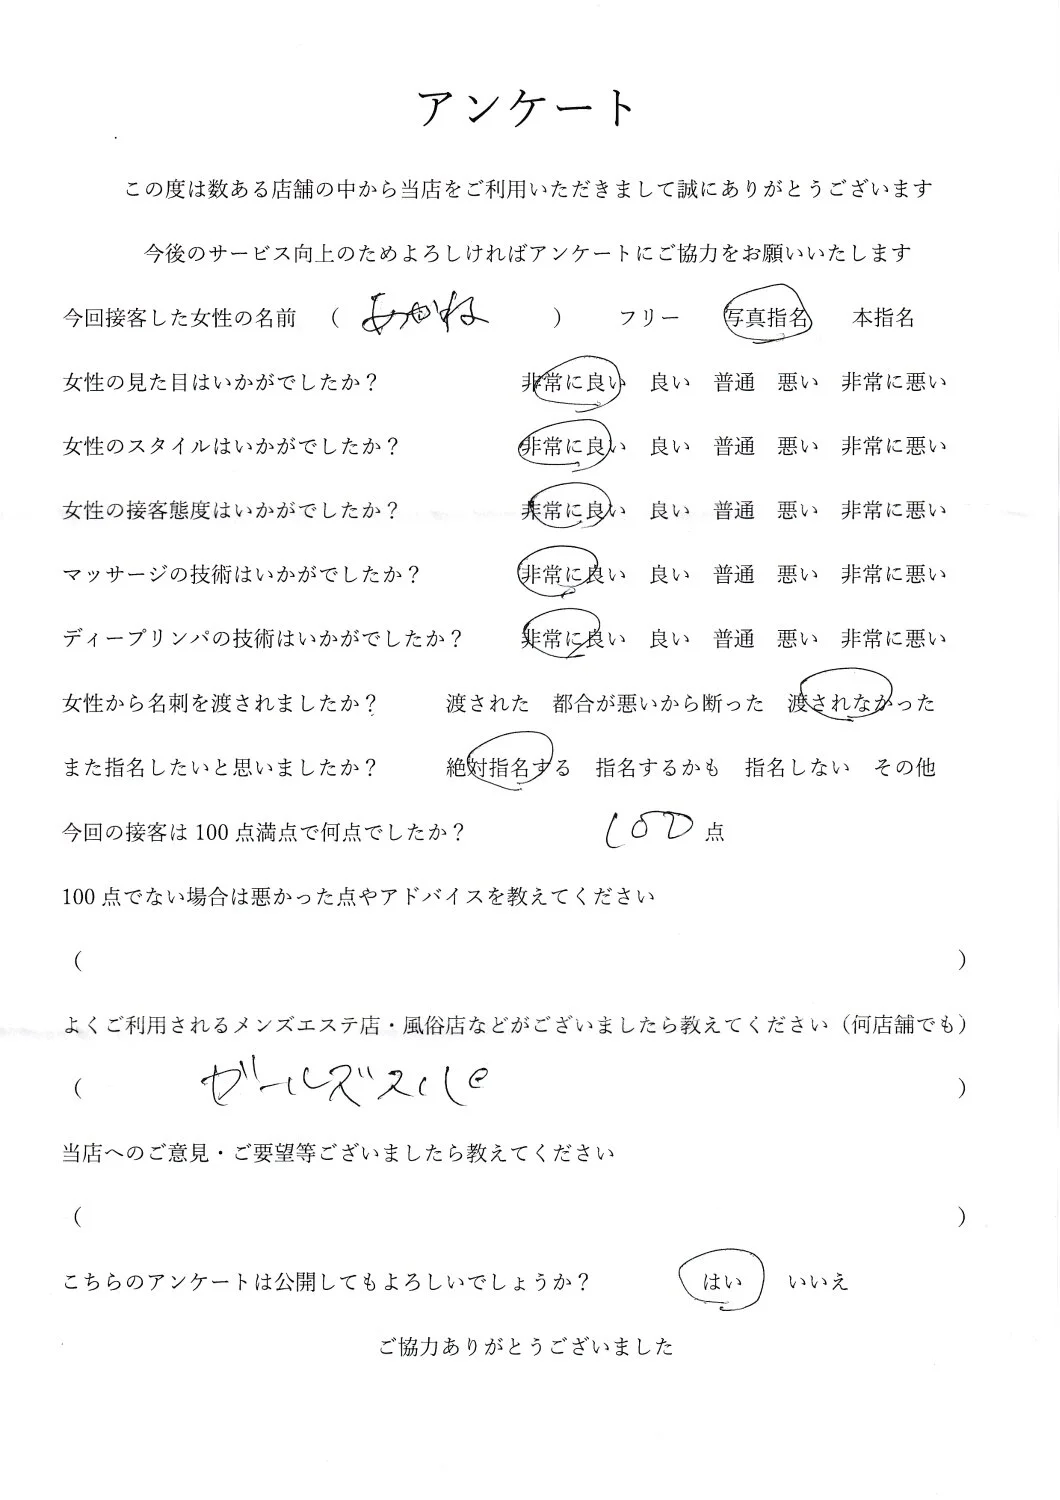 アンケート
この度は数ある店舗の中から当店をご利用いただきまして誠にありがとうございます
今後のサービス向上のためよろしければアンケートにご協力をお願いいたします
今回接客した女性の名前 ( あかね ) フリー 写真指名 本指名
女性の見た目はいかがでしたか? 非常に良い 良い 普通 悪い 非常に悪い
女性のスタイルはいかがでしたか? 非常に良い 良い 普通 悪い 非常に悪い
女性の接客態度はいかがでしたか? 非常に良い 良い 普通 悪い 非常に悪い
マッサージの技術はいかがでしたか? 非常に良い 良い 普通 悪い 非常に悪い
ディープリンパの技術はいかがでしたか? 非常に良い 良い 普通 悪い 非常に悪い
女性から名刺を渡されましたか? 渡された 都合が悪いから断った 渡されなかった
また指名したいと思いましたか? 絶対指名する 指名するかも 指名しない その他
今回の接客は 100 点満点で何点でしたか? 100 点
100 点でない場合は悪かった点やアドバイスを教えてください
( )
よくご利用されるメンズエステ店・風俗店などがございましたら教えてください（何店舗でも）
( ガールズスパ )
当店へのご意見・ご要望等ございましたら教えてください
( )
こちらのアンケートは公開してもよろしいでしょうか? はい いいえ
ご協力ありがとうございました